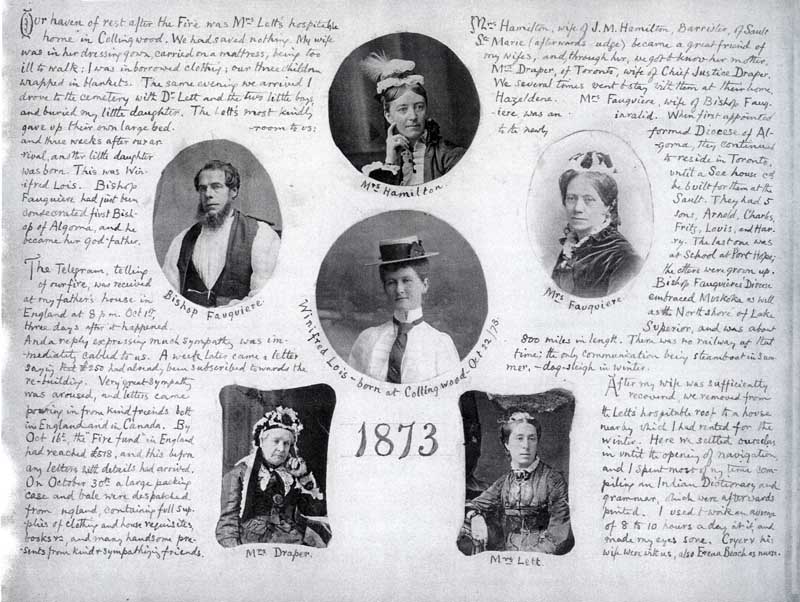 Our haven of rest after the Fire was Mrs Lett's hospitable
home in Collingwood. We had saved nothing. My wife
was in her dressing gown, carried on a mattress, being too
ill to walk; I was in borrowed clothing; our three children
wrapped in blankets. The same evening we arrived I
drove to the cemetery with Dr Lett and the two little boys
and buried my little daughter. The Letts most kindly
gave up their own large bed-room to us;
and three weeks after our ar-
rival, another little daughter
was born. This was Win-
ifred Lois. Bishop
Fauquiere had just been
consecrated first Bish-
op of Algoma, and he
became her god-father.
The Telegram, telling
of our fire, was received
at my father's house in
England at 8 p.m. Oct 1st,
three days after it happened.
And a reply expressing much sympathy was im-
mediately cabled to us. A week later came a letter
saying that £250 had already been subscribed towards the
re-building. Very great sympathy
was aroused, and letters came
pouring in from kind friends both
in England and in Canada. By
Oct 16th, the "Fire fund" in England
had reached £518, and this before
any letters with details had arrived.
On October 30th a large packing
case and bale were despatched
from ngland, containing full sup-
plies of clothing and house requisites,
books &c, and many handsome pre-
sents from kind & sympathizing friends.
Mrs Hamilton, wife of J. M. Hamilton, Barrister, of Sault
Ste Marie (afterwards udge) became a great friend of
my wife's, and through her, we got to know her mother,
Mrs Draper, of Toronto, wife of Chief Justice Draper.
We several times went to stay with them at their home,
Hazeldene. Mrs Fauquiere, wife of Bishop Fauq-
iere was an invalid. When first appointed
to the newly formed Diocese of Al-
goma, they continued
to reside in Toronto,
until a See house cd
be built for them at the
Sault. They had 5
sons, Arnold, Charles,
Fritz, Louis, and Har-
ry. The last one was
at School at Port Hope;
the others were grown up.
Bishop Fauquiere's Diocese
embraced Muskoka as well
as the North shore of Lake
Superior, and was about
800 miles in length. There was no railway at that
time; the only communication being steamboat in sum-
mer, – dog-sleigh in winter.
After my wife was sufficiently
recovered, we removed from
the Letts hospitable roof to a house
near by which I had rented for the
winter. Here we settled ourselves
in until the opening of navigation,
and I spent most of my time com-
piling an Indian Dictionary and
grammar, which were afterwards
printed. I used to write an average
of 8 to 10 hours a day at it, and
made my eyes sore. Cryer & his
wife were with us, also Emma Beach as nurse.
Mrs Hamilton.
Bishop Fauquiere.
Mrs Fauquiere.
Winifred Lois – born at Collingwood – Oct 22/73.
1873
Mrs Draper.
Mrs Lett.